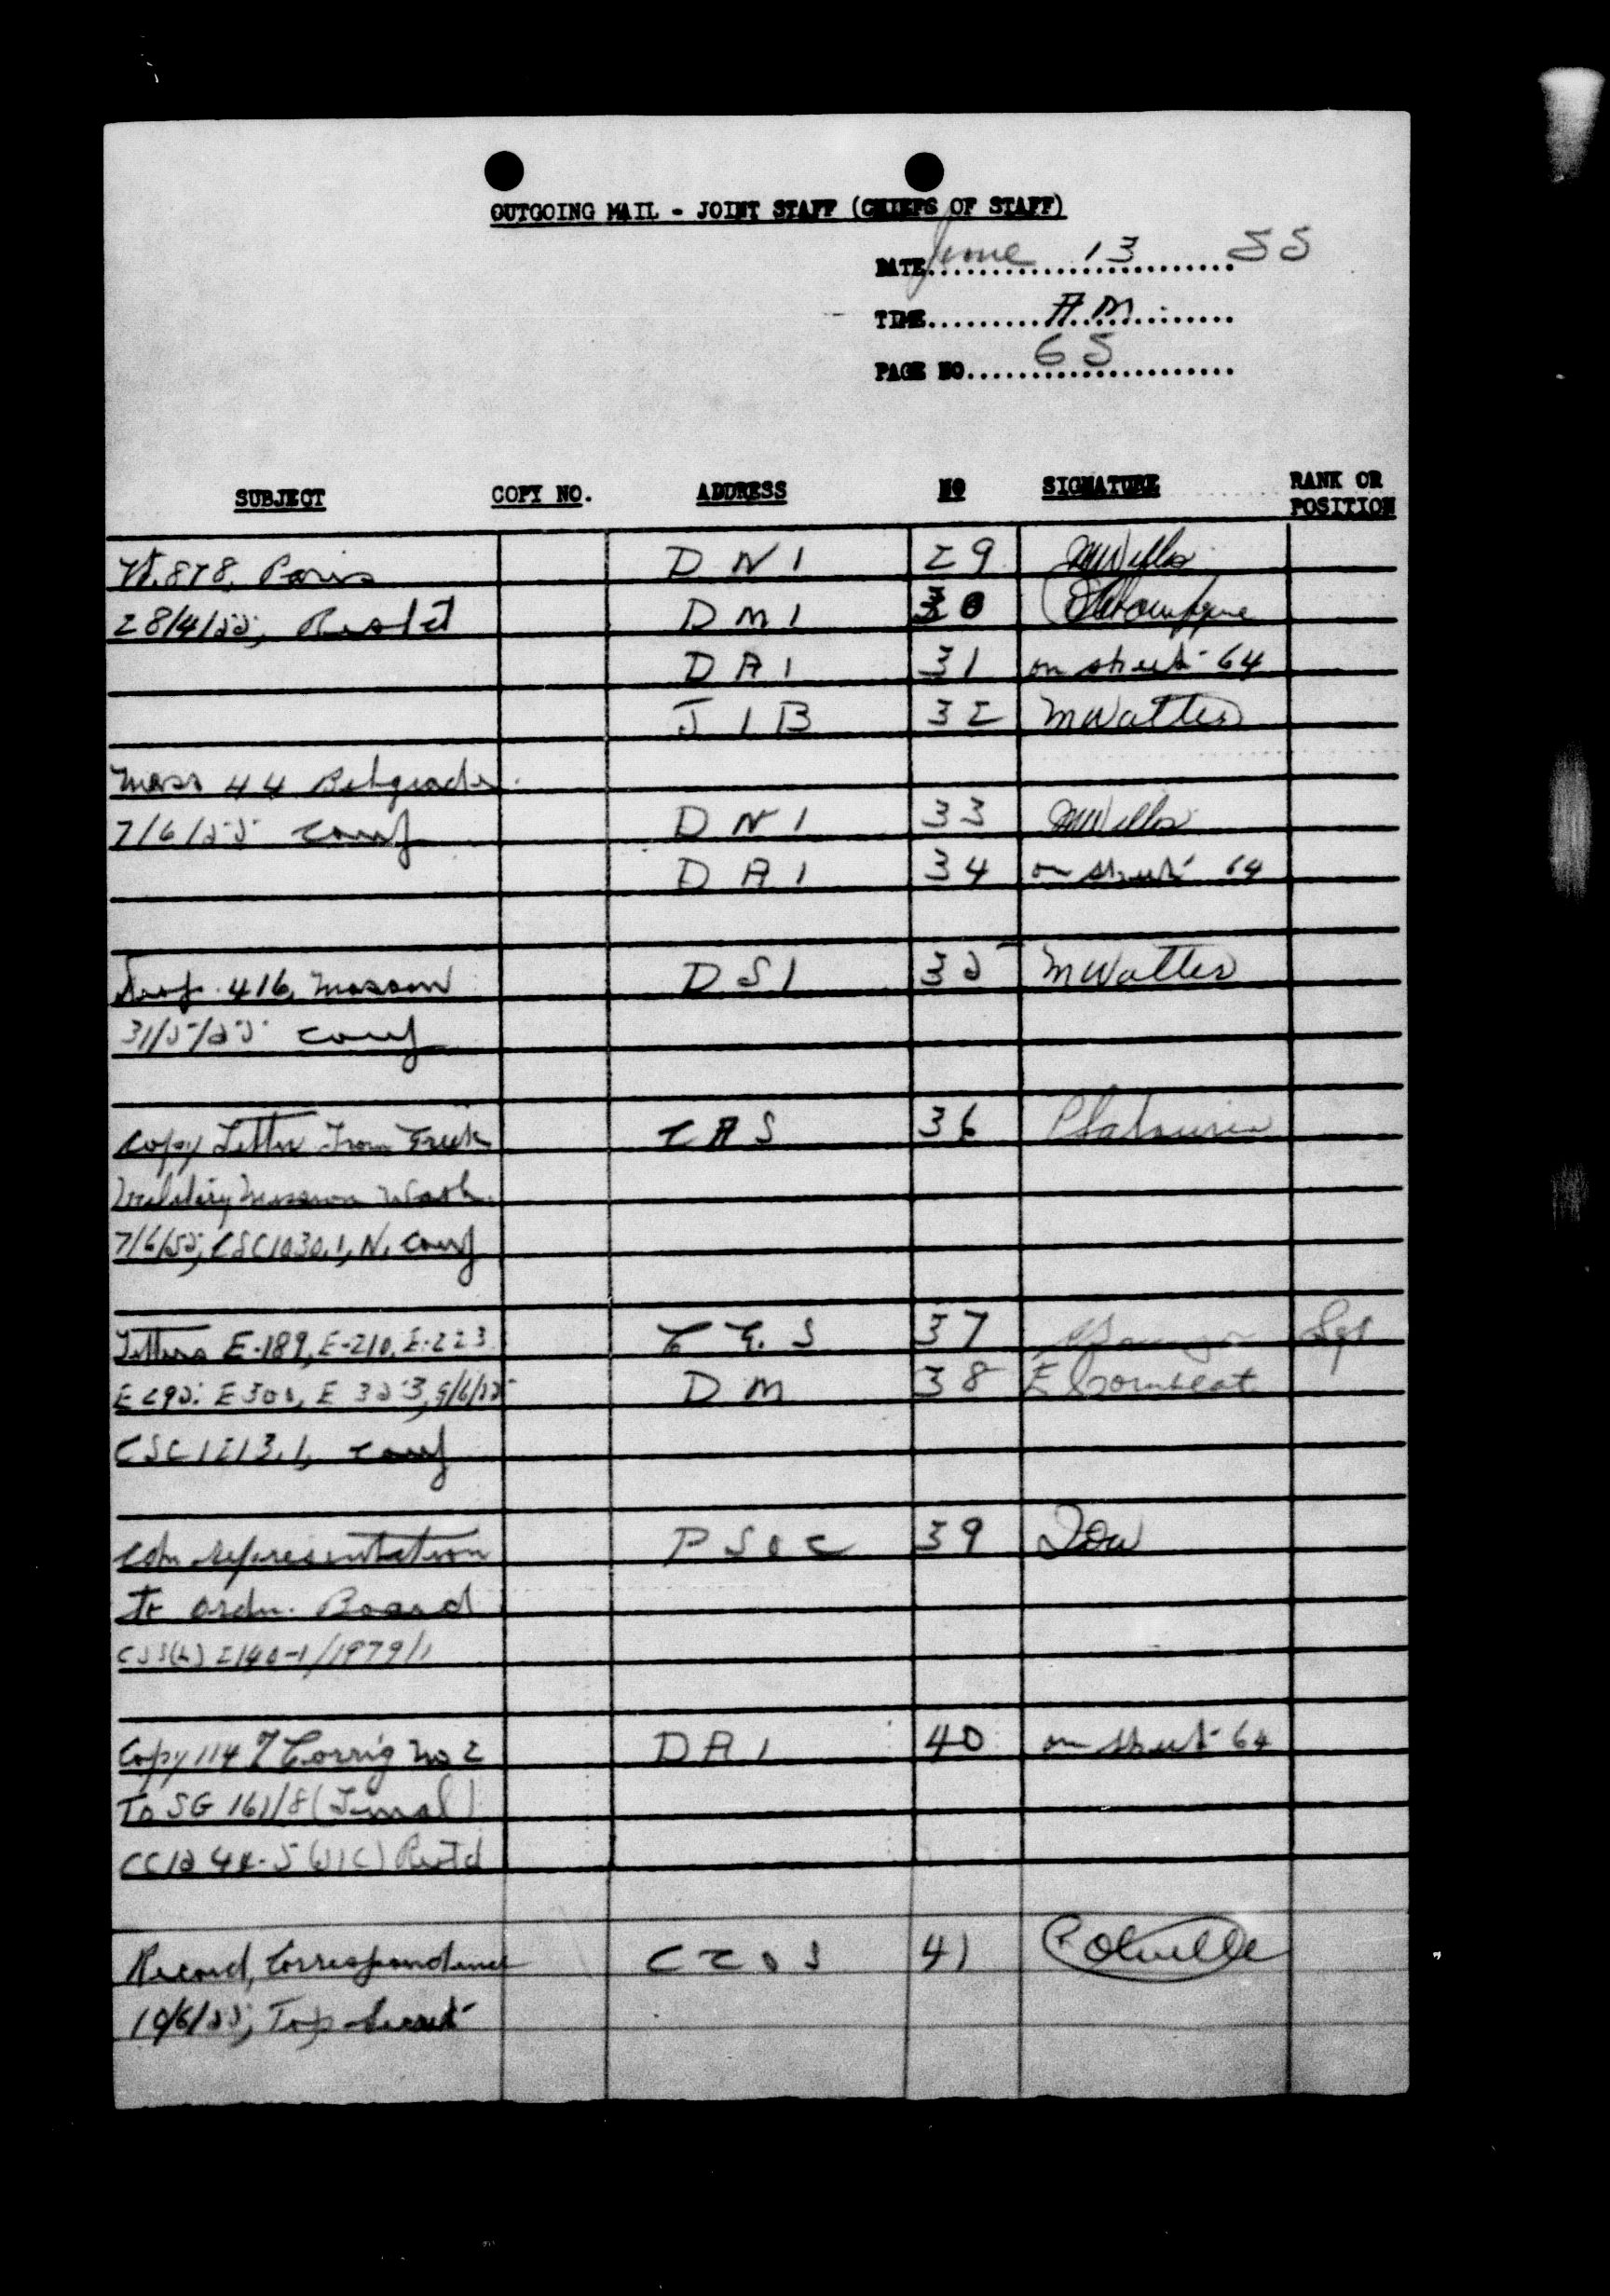 OUTGOING MAIL - JOINT STAFF (CHIEFS OF STAFF)
DATE June 13 55
TIME A.M.
PAGE NO 65
SUBJECT COPY NO. ADDRESS NO SIGNATURE RANK OR POSITION
878, Paris DNI 29 MWills
28/4/55, Rest'd DMI 30
DAI 31 on sheet 64
JIB 32 MWatters
Mess 44 Belgrade
7/6/55 Conf DNI 33 MWills
DAI 34 on sheet 64
416, DSI 35 MWatters
31/5/55 Conf
Copy Letter From Greek CAS 36
Military Mission Wash.
7/6/55, CSC1030.1, N. Conf
Letters E-189, E-210, E-223 CGS 37 Sgt
E 295, E 300, E 353, 9/6/55 DM 38 E
CSC1213.1, Conf
Cdn representation PSOC 39
To Ordn. Board
2140-1/1979/1
Copy 114 of Corrig No 2 DAI 40 on sheet 64
To SG 161/8 (Final)
(JIC) Rest'd
Record, Correspondence CCOS 41
10/6/55, Top Secret